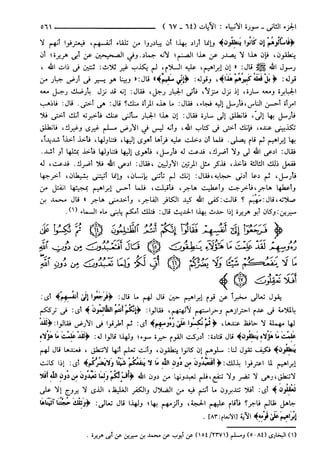 الجزء الثاني - سورة الأنبياء : الآيات (٦٤ - ٦٧) ٥٦١
﴿فَاسْأَلُوهُمْ إِن كَانُوا يَنطِقُونَ﴾ وإنما أراد بهذا أن يبادروا من تلقاء أنفسهم، فيعترفوا أنهم لا
ينطقون، فإن هذا لا يصدر عن هذا الصنم، لأنه جماد. وفي الصحيحين عن أبي هريرة؛ أن
رسول الله ﷺ قال: «إن إبراهيم، عليه السلام، لم يكذب غير ثلاث: ثنتين في ذات الله ،
قوله: ﴿بَلْ فَعَلَهُ كَبِيرُهُمْ هَذَا﴾، وقوله: ﴿إِنِّي سَقِيمٌ﴾ قال: «وبينا هو يسير في أرض جبار من
الجبابرة ومعه سارة، إذ نزل منزلاً، فأتى الجبار رجل، فقال: إنه قد نزل بأرضك رجل معه
امرأة أحسن الناس، فأرسل إليه فجاء، فقال: ما هذه المرأة منك؟ قال: هي أختي. قال: فاذهب
فأرسل بها إليّ، فانطلق إلى سارة فقال: إن هذا الجبار سألني عنك فأخبرته أنك أختي فلا
تكذبيني عنده، فإنك أختي في كتاب الله، وأنه ليس في الأرض مسلم غيري وغيرك، فانطلق
بها إبراهيم ثم قام يصلي. فلما أن دخلت عليه فرآها أهوى إليها، فتناولها، فأخذ أخذاً شديداً،
فقال: ادعي الله لي ولا أضرك، فدعت له فأرسل، فأهوى إليها فتناولها فأخذ بمثلها أو أشد.
ففعل ذلك الثالثة فأخذ، فذكر مثل المرتين الأوليين، فقال: ادعي الله فلا أضرك. فدعت، له
فأرسل، ثم دعا أدنى حجابه، فقال: إنك لم تأتني بإنسان، وإنما أتيتني بشيطان، أخرجها
وأعطها هاجر، فأخرجت وأعطيت هاجر، فأقبلت، فلما أحس إبراهيم بمجيئها انفتل من
صلاته، قال: مهيم؟ قالت: كفى الله كيد الكافر الفاجر، وأخدمني هاجر» قال محمد بن
سيرين: وكان أبو هريرة إذا حدث بهذا الحديث قال: فتلك أمكم يابني ماء السماء (١).
يقول تعالى مخبراً عن قوم إبراهيم حين قال لهم ما قال: ﴿فَرَجَعُوا إِلَى أَنفُسِهِمْ﴾ أي:
بالملامة في عدم احترازهم وحراستهم لآلهتهم، فقالوا: ﴿إِنَّكُمْ أَنتُمُ الظَّالِمُونَ﴾ أي: في ترككم
لها مهملة لا حافظ عندها، ﴿ثُمَّ نُكِسُوا عَلَى رُءُوسِهِمْ﴾ أي: ثم أطرقوا في الأرض فقالوا: ﴿لَقَدْ
عَلِمْتَ مَا هَؤُلَاءِ يَنطِقُونَ﴾ قال قتادة: أدركت القوم حيرة سوء، ولهذا قالوا له: ﴿لَقَدْ عَلِمْتَ مَا هَؤُلَاءِ
يَنطِقُونَ﴾ فكيف تقول لنا: سلوهم إن كانوا ينطقون، وأنت تعلم أنها لا تنطق ، فعندها قال لهم
إبراهيم لما اعترفوا بذلك: ﴿أَفَتَعْبُدُونَ مِن دُونِ اللَّهِ مَا لَا يَنفَعُكُمْ شَيْئًا وَلَا يَضُرُّكُمْ﴾ أي: إذا كانت
لا تنطق، وهي لا تضر ولا تنفع، فلم تعبدونها من دون الله ﴿أُفٍّ لَّكُمْ وَلِمَا تَعْبُدُونَ مِن دُونِ اللَّهِ أَفَلَا
تَعْقِلُونَ﴾ أي: أفلا تتدبرون ما أنتم فيه من الضلال والكفر الغليظ، الذي لا يروج إلا على
جاهل ظالم فاجر؟ فأقام عليهم الحجة، وألزمهم بها، ولهذا قال تعالى: ﴿وَتِلْكَ حُجَّتُنَا آتَيْنَاهَا
إِبْرَاهِيمَ عَلَى قَوْمِهِ﴾ الآية [الأنعام: ٨٣].
(١) البخاري (٥٠٨٤) ومسلم (٢٣٧١/١٥٤) عن أيوب عن محمد بن سيرين عن أبي هريرة .